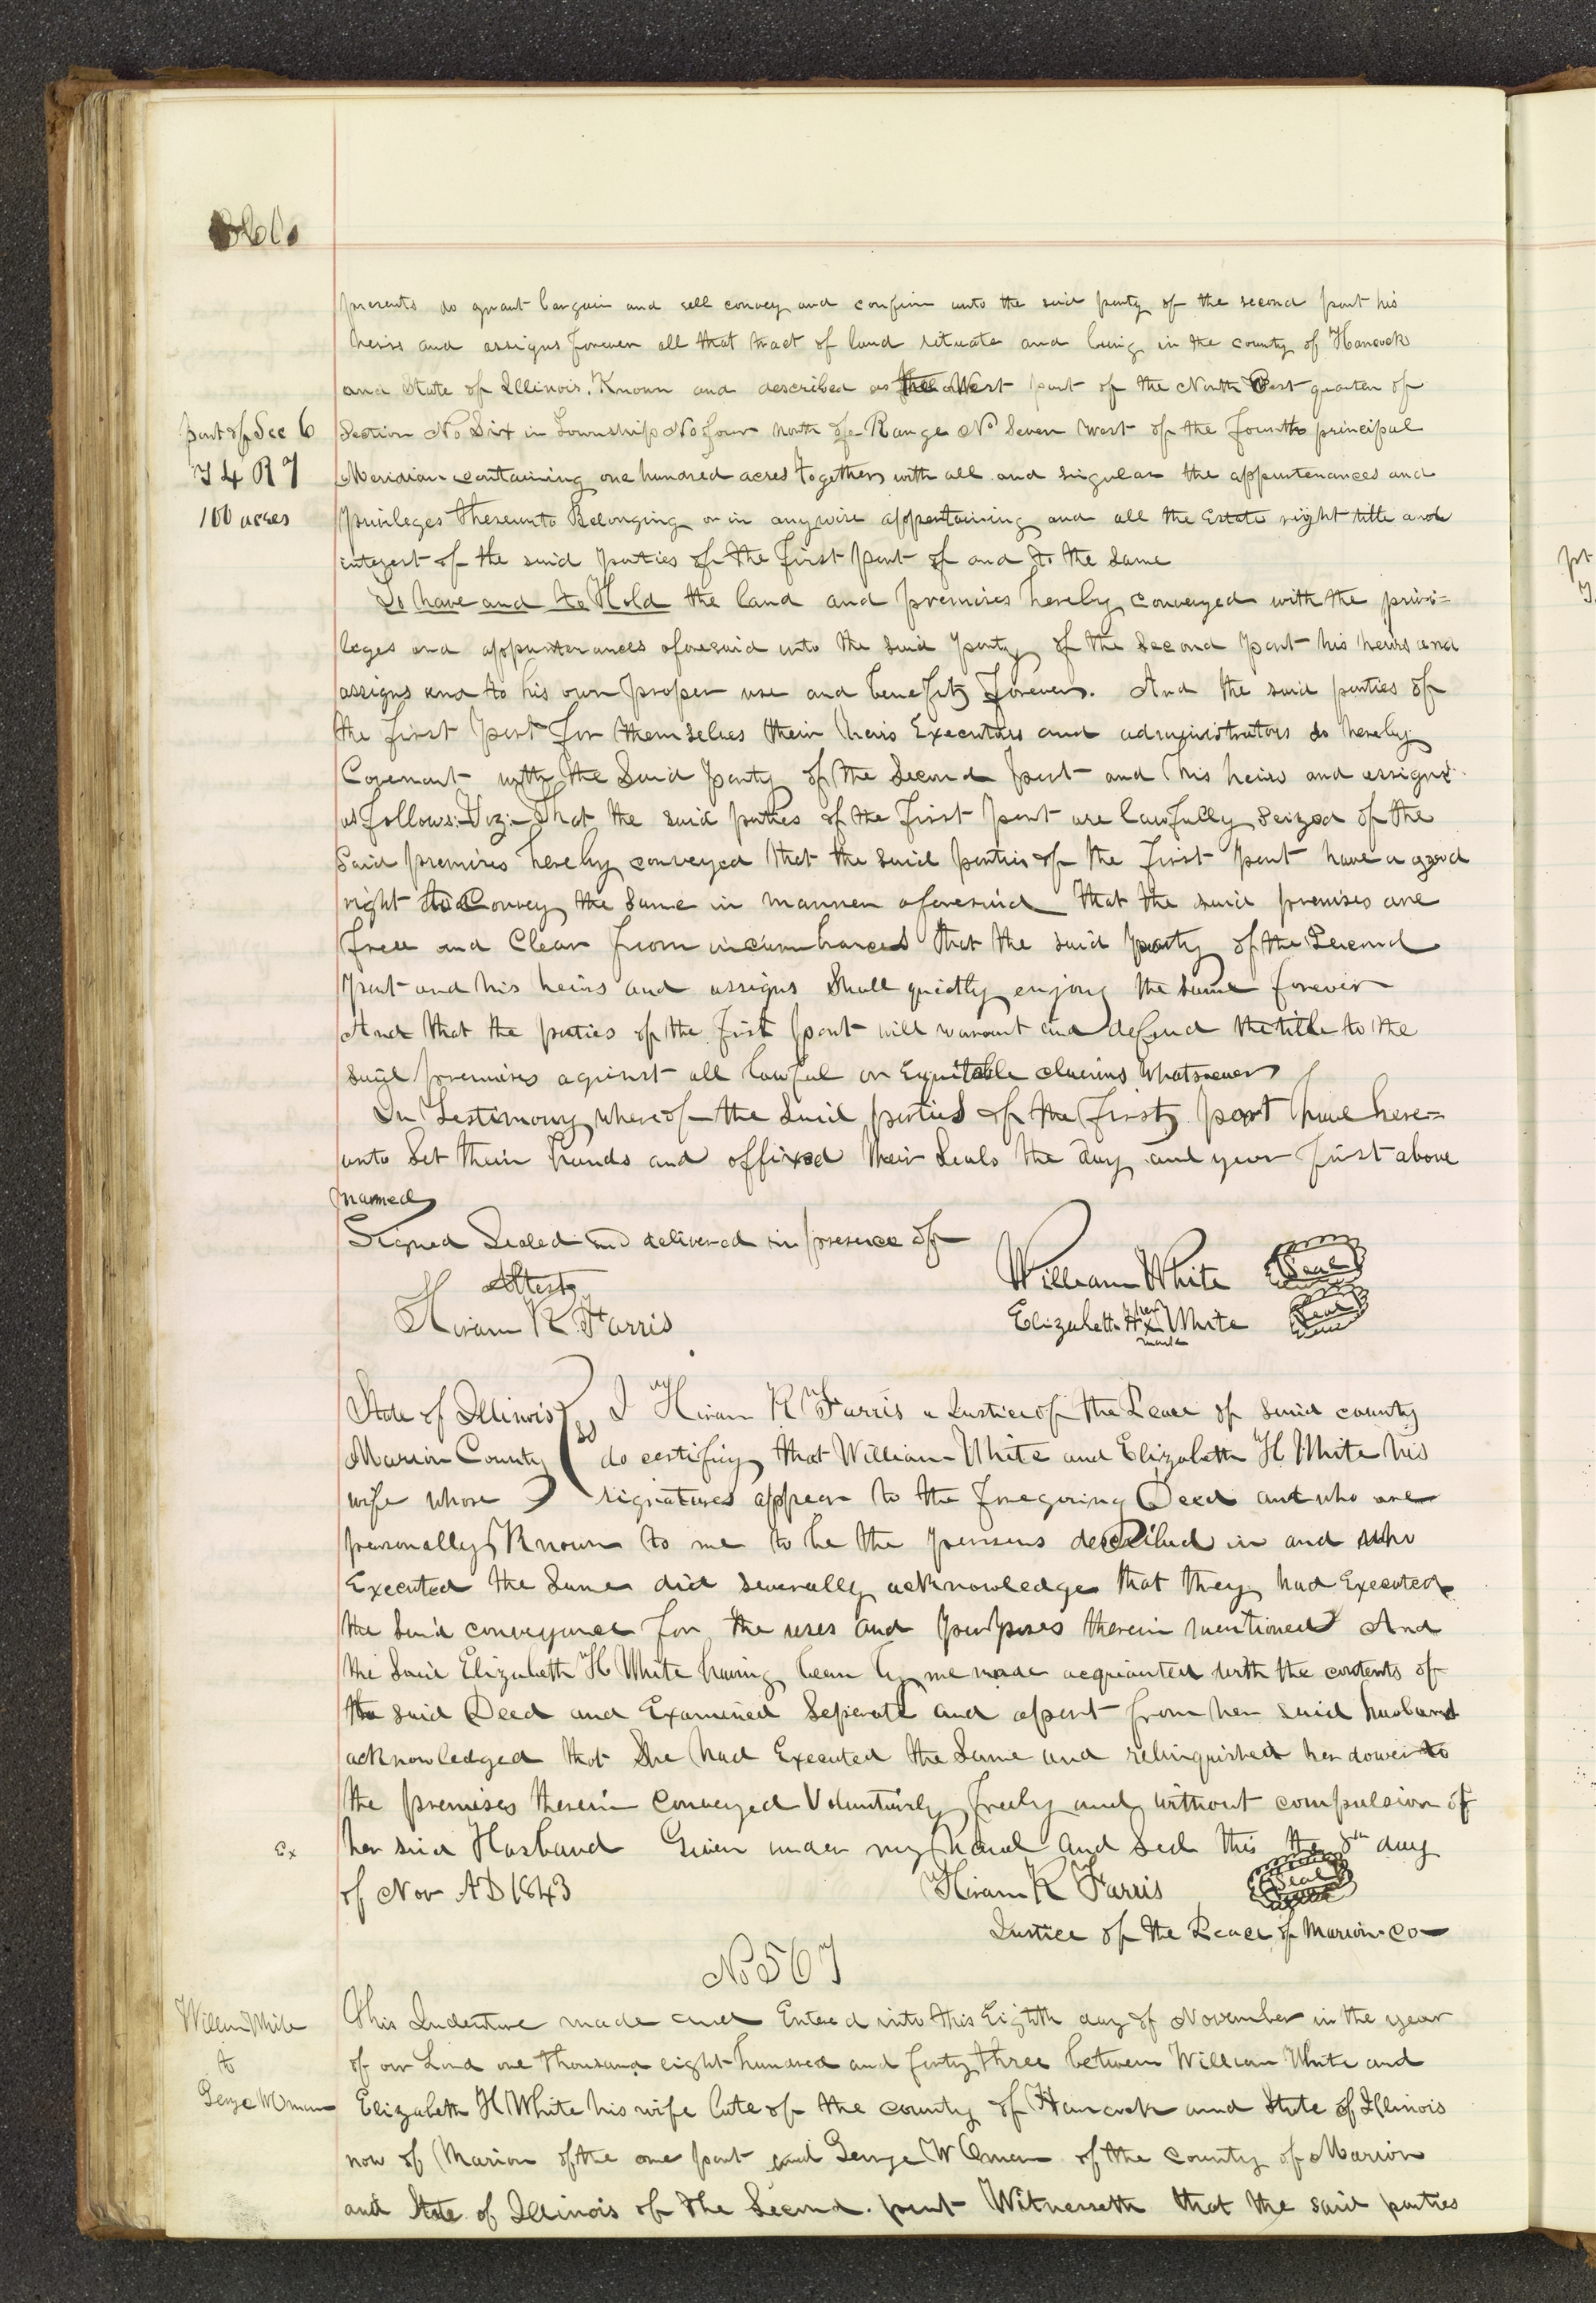 presents do grant bargain and sell convey and confirm unto the said party of the second part his
heirs and assigns forever all that tract of land situate and being in the county of Hancock
and State of Illinois. Known and described as the West part of the North West quarter of
part of Sec 6
Section No Six in Township No four north of Range No Seven West of the fourth principal
T 4 R 7
Meridian containing one hundred acres together with all and singular the appurtenances and
100 acres
privileges thereunto Belonging or in anywise appertaining and all the Estate right title and
interest of the said parties of the first part of and to the same
To have and to Hold the land and premises hereby conveyed with the privi=
leges and appurtenances aforesaid unto the said party of the Second part his heirs and
assigns and to his own proper use and benefit forever. And the said parties of
the first part for themselves their heirs Executors and administrators do hereby
Covenant with the Said party of the Second part and his heirs and assigns
as follows:-Viz:-That the said parties of the first part are lawfully Seized of the
Said premises hereby conveyed that the said parties of the first part have a good
right to Convey the Same in manner aforesaid That the said premises are
free and Clear from incumbrances that the said party of the Second
part and his heirs and assigns Shall quietly enjoy the Same forever
And that the parties of the first part will warrant and defend the title to the
said premises against all lawful or Equitable claims Whatsoever
In Testimony whereof the Said parties of the first part have here=
unto Set their hands and affixed their Seals the day and year first above
named
Signed Sealed and delivered in presence of
Attest
William White Seal
Hiram R Farris
Elizabeth H her x mark White Seal
State of Illinois ss I Hiram R Farris a Justice of the Peace of said county
Marion County do certify that William White and Elizabeth H White his
wife whose signatures appear to the foregoing Deed and who are
personally Known to me to be the persons described in and who
Executed the Same did severally acknowledge that they had Executed
the said conveyance for the uses and purposes therein mentioned And
the Said Elizabeth H White having been by me made acquainted with the contents of
the said Deed and Examined Seperate and apart from her said husband
acknowledged that She had Executed the Same and relinquished her dower to
the premises therein Conveyed Voluntarily freely and without compulsion of
Ex
her said Husband Given under my hand and Seal this the 8th day
of Nov AD 1843 Hiram R Farris Seal
Justice of the Peace of Marion Co
No 567
William White
to
George W Oman
This Indenture made and Entered into this Eighth day of November in the year
of our Lord one thousand eight hundred and forty three between William White and
Elizabeth H White his wife late of the county of Hancock and State of Illinois
now of Marion of the one part and George W Oman of the county of Marion
and State of Illinois of the Second part Witnesseth that the said parties